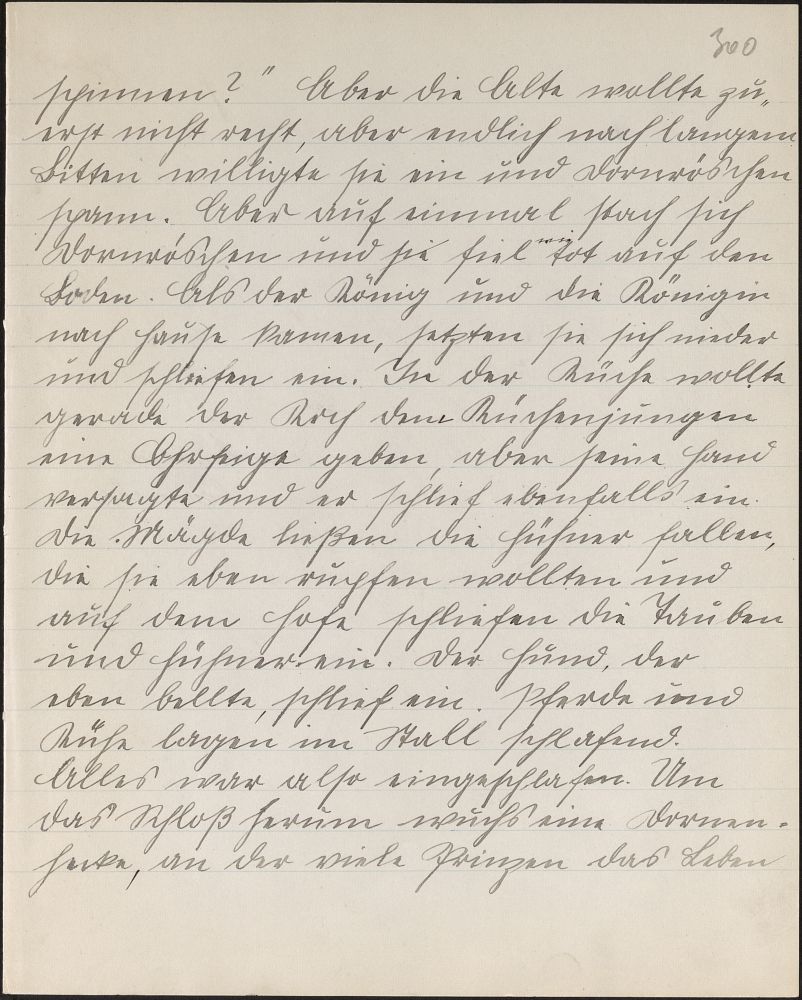 300
spinnen?" Aber die Alte wollte zu„
erst nicht recht, aber endlich nach langem
Bitten willigte sie ein und Dornröschen
spann. Aber auf einmal stach sich
Dornröschen und sie fiel wie tot auf den
Boden. Als der König und die Königin
nach Hause kamen, setzten sie sich nieder
und schliefen ein. In der Küche wollte
gerade der Koch dem Küchenjungen
eine Ohrfeige geben, aber seine Hand
versagte und er schlief ebenfalls ein.
Die Mägde ließen die Hühner fallen,
die sie eben rupfen wollten und
auf dem Hofe schliefen die Tauben
und Hühner ein. Der Hund, der
eben bellte, schlief ein. Pferde und
Kühe lagen im Stall schlafend.
Alles war also eingeschlafen. Um
das Schloß herum wuchs eine Dornen-
hecke, an der viele Prinzen das Leben